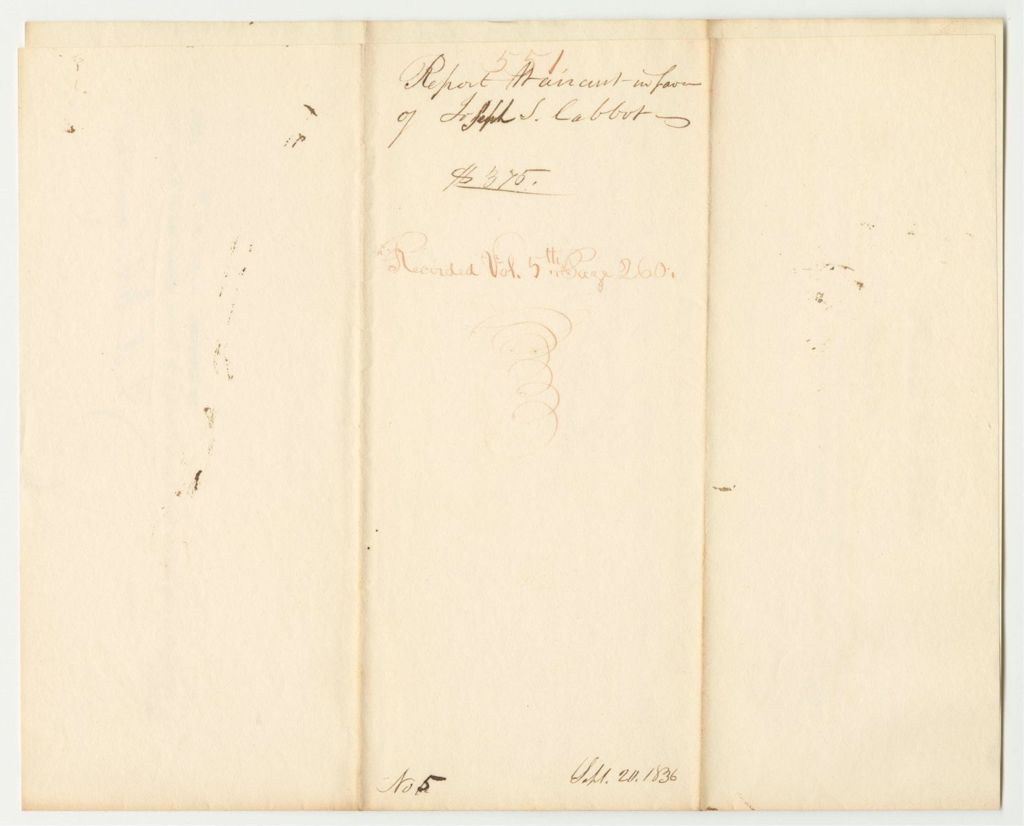 551
Report Warrant in favor
of Joseph S. Cabbot
$375.
Recorded Vol. 5th Page 260.
No 5
Sept. 20. 1836